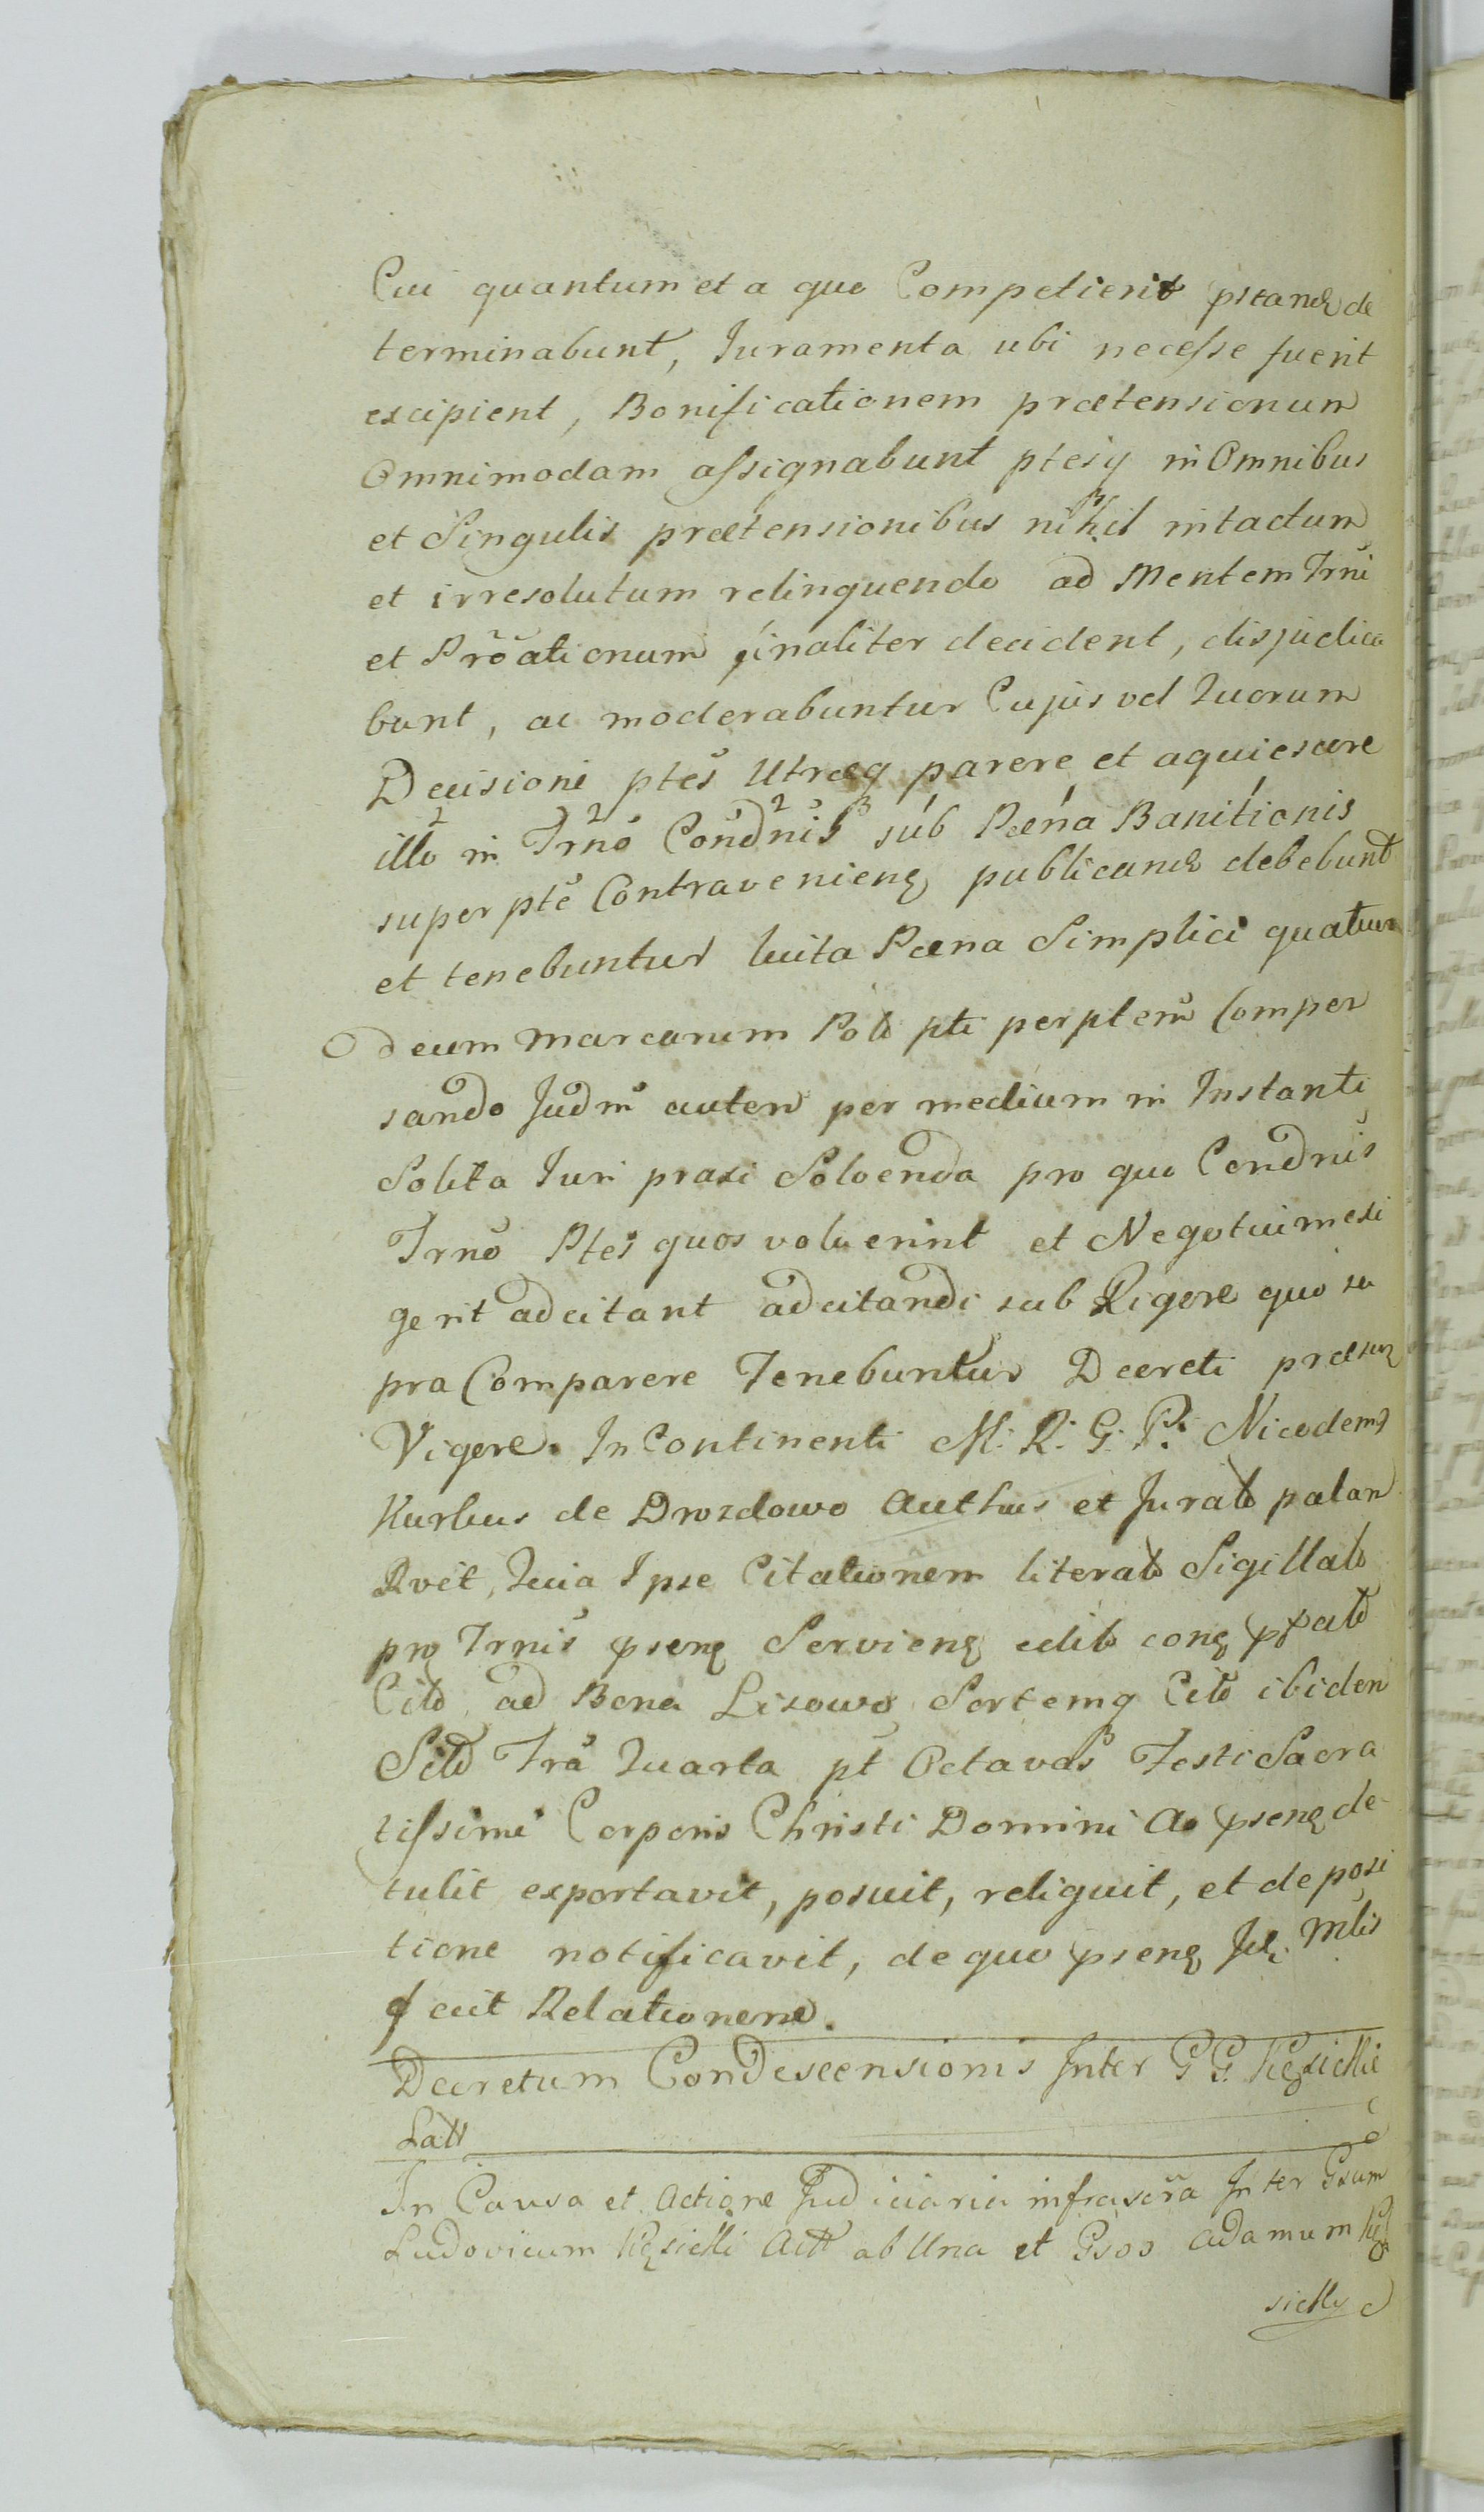 Cui quantum et a quo Competierit pstand de
terminabunt, Iuramenta ubi necesse fuerit
excipient, Bonificationem prætensionum
Omnimodam assignabunt ptesq in Omnibus
et Singulis prætensionibus nihil intactum
et irresolutum relinquendo ad Mentem Trni
et Proationum finaliter decident, disjudica
bunt, ac moderabuntur Cujus vel Quorum
Decisioni ptes Utræq parere et aquiescere
illo in Trno Condnis sub Pæna Banitionis
super pte Contravenienq publicand debebunt
et tenebuntur luita Pæna Simplici quatuor
decim Marcarum Pol pti per ptem Compen
sando Judm autem per medium in Instanti
Solita Iuri praxi Solvenda pro quo Condnis
Trno Ptes quos voluerint et Negotium exi
gerit adcitant adcitandi sub Rigore quo su
pra Comparere Tenebuntur Decreti præsen
Vigore. In Continenti M. R. G. P. Nicodemq
Kurlus de Drozdowo Authus et Jurat palam
Rvit, Quia Ipse Citationem literat Sigillat
pro Trnis psenq Servienq edit conq
Cit ad Bona Lisowo Sortemq Cit ibidem
Sit Fra Quarta pt Octavas Festi Sacra
tissimi Corporis Christi Domini Ao psenq de
tulit exportavit, posuit, reliquit, et de posi
tione notificavit, de quo psenq Mlis
fecit Relationem.
Decretum Condescensionis Inter G G. Kęsickie
Latt
In Causa et Actione Judiciaria infrascra Inter Gsum
Ludovicum Kęsicki Actt ab Una et Gsos Adamum Kę
sicki